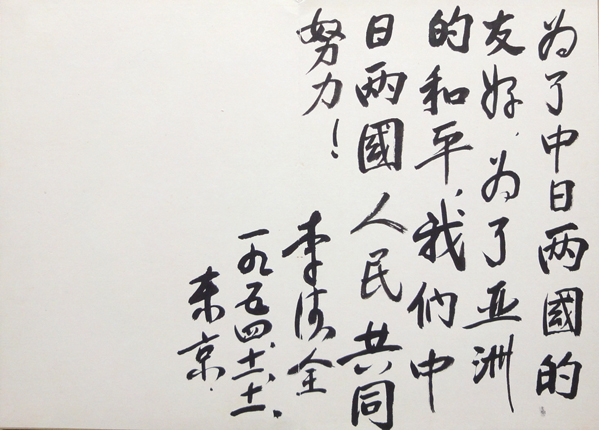 为了中日两國的
友好，为了亚洲
的和平，我们中
日两國人民共同
努力！
李德全
一九五四、十一、十一、
东京.